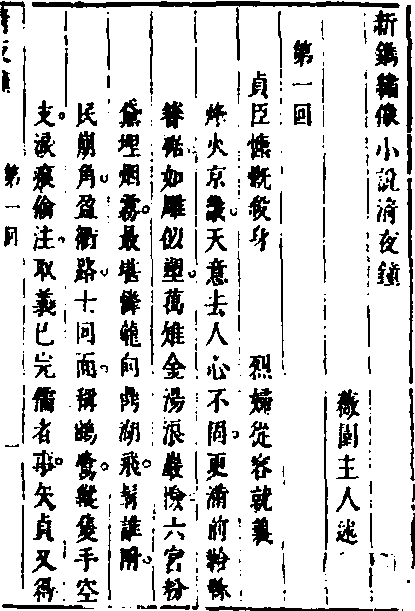 新鐫繡像小說清夜鐘
薇園主人述
第一回
貞臣慷慨殺身　烈婦從容就義
烽火京　天意去人心不固。更滿前
如雕似塑。萬雉金湯浪嚴險六宮粉
黛埋烟霧。最堪憐龍向鼎湖飛。髯誰附。
民崩角盈衢路。十同面。稱鵷鷺。縱隻手空
支。淚痕偷注。取義已完儒者事。矢貞又得
清夜鐘　第一回　一